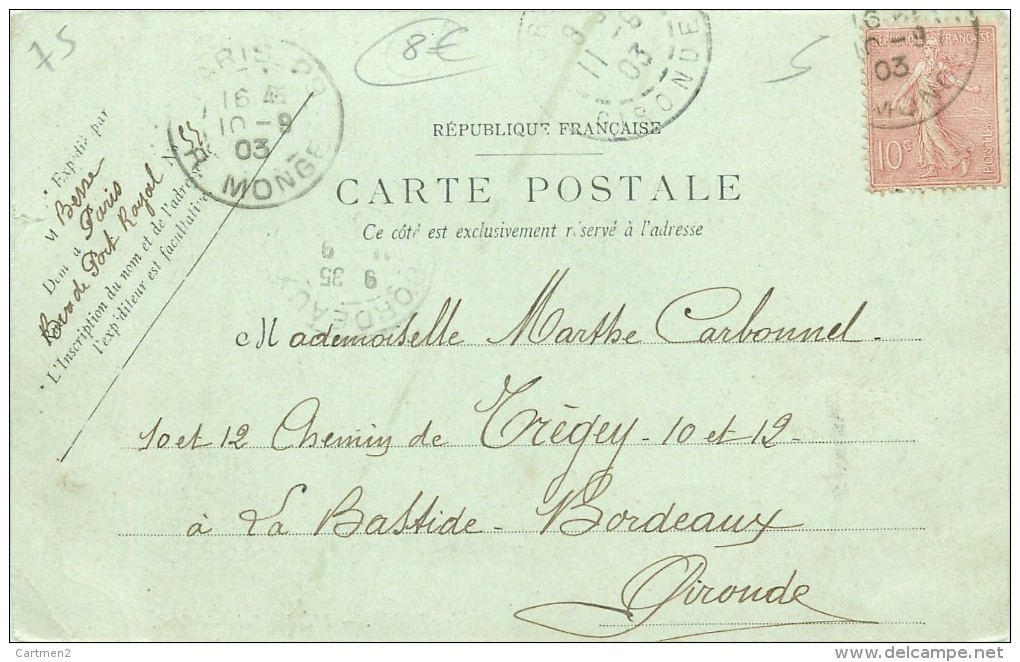 75
8€
5
PARIS
16 45
10 - 9
03
R. MONGE
11 - 9
03
GIRONDE
10 - 9
03
RÉPUBLIQUE FRANÇAISE
10c
POSTES
RÉPUBLIQUE FRANÇAISE
CARTE POSTALE
Ce côté est exclusivement réservé à l'adresse
9 35
BORDEAUX
Expédié par
M Besse
Dem à Paris
de Port Royal No
L'Inscription du nom et de l'adresse de
l'expéditeur est facultative
Mademoiselle Marthe Carbonnel
10 et 12 Chemin de Trègey - 10 et 12 -
à La Bastide - Bordeaux
Gironde
Cartmen2
delcampe.net